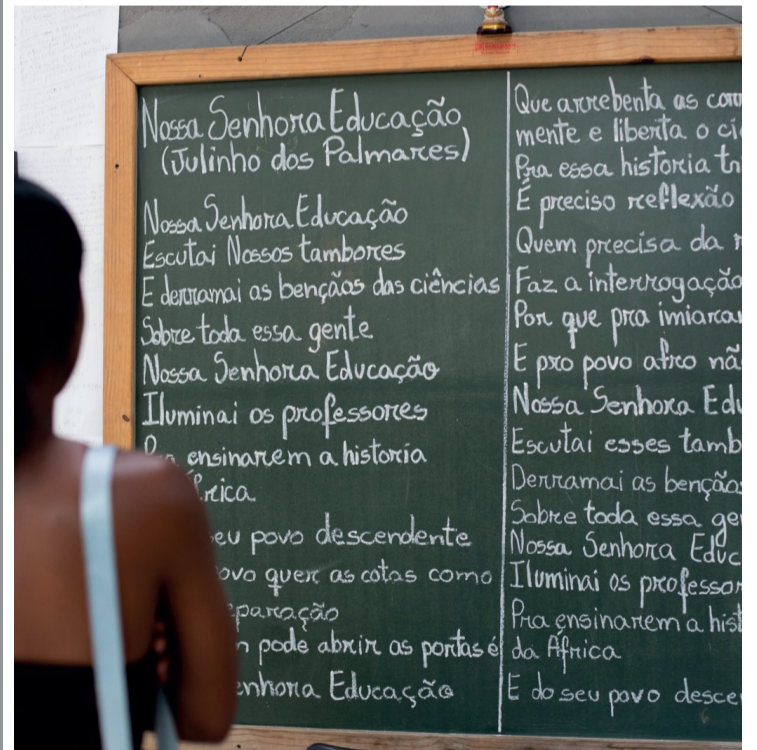 Nossa Senhora Educação
(Julinho dos Palmares)
Nossa Senhora Educação
Escutai Nossos tambores
E derramai as bençãos das ciências
Sobre toda essa gente
Nossa Senhora Educação
Iluminai os professores
ensinarem a historia
povo descendente
quer as cotas como
pode abrir as portas é
Educação
Que arrebenta as
mente e liberta o
Pra essa historia
É preciso reflexão
Quem precisa da
Faz a interrogação
Por que pra
E pro povo afro
Nossa Senhora
Escutai esses
Derramai as bençãos
Sobre toda essa
Nossa Senhora
Iluminai os
Pra ensinarem a
da África
E do seu povo